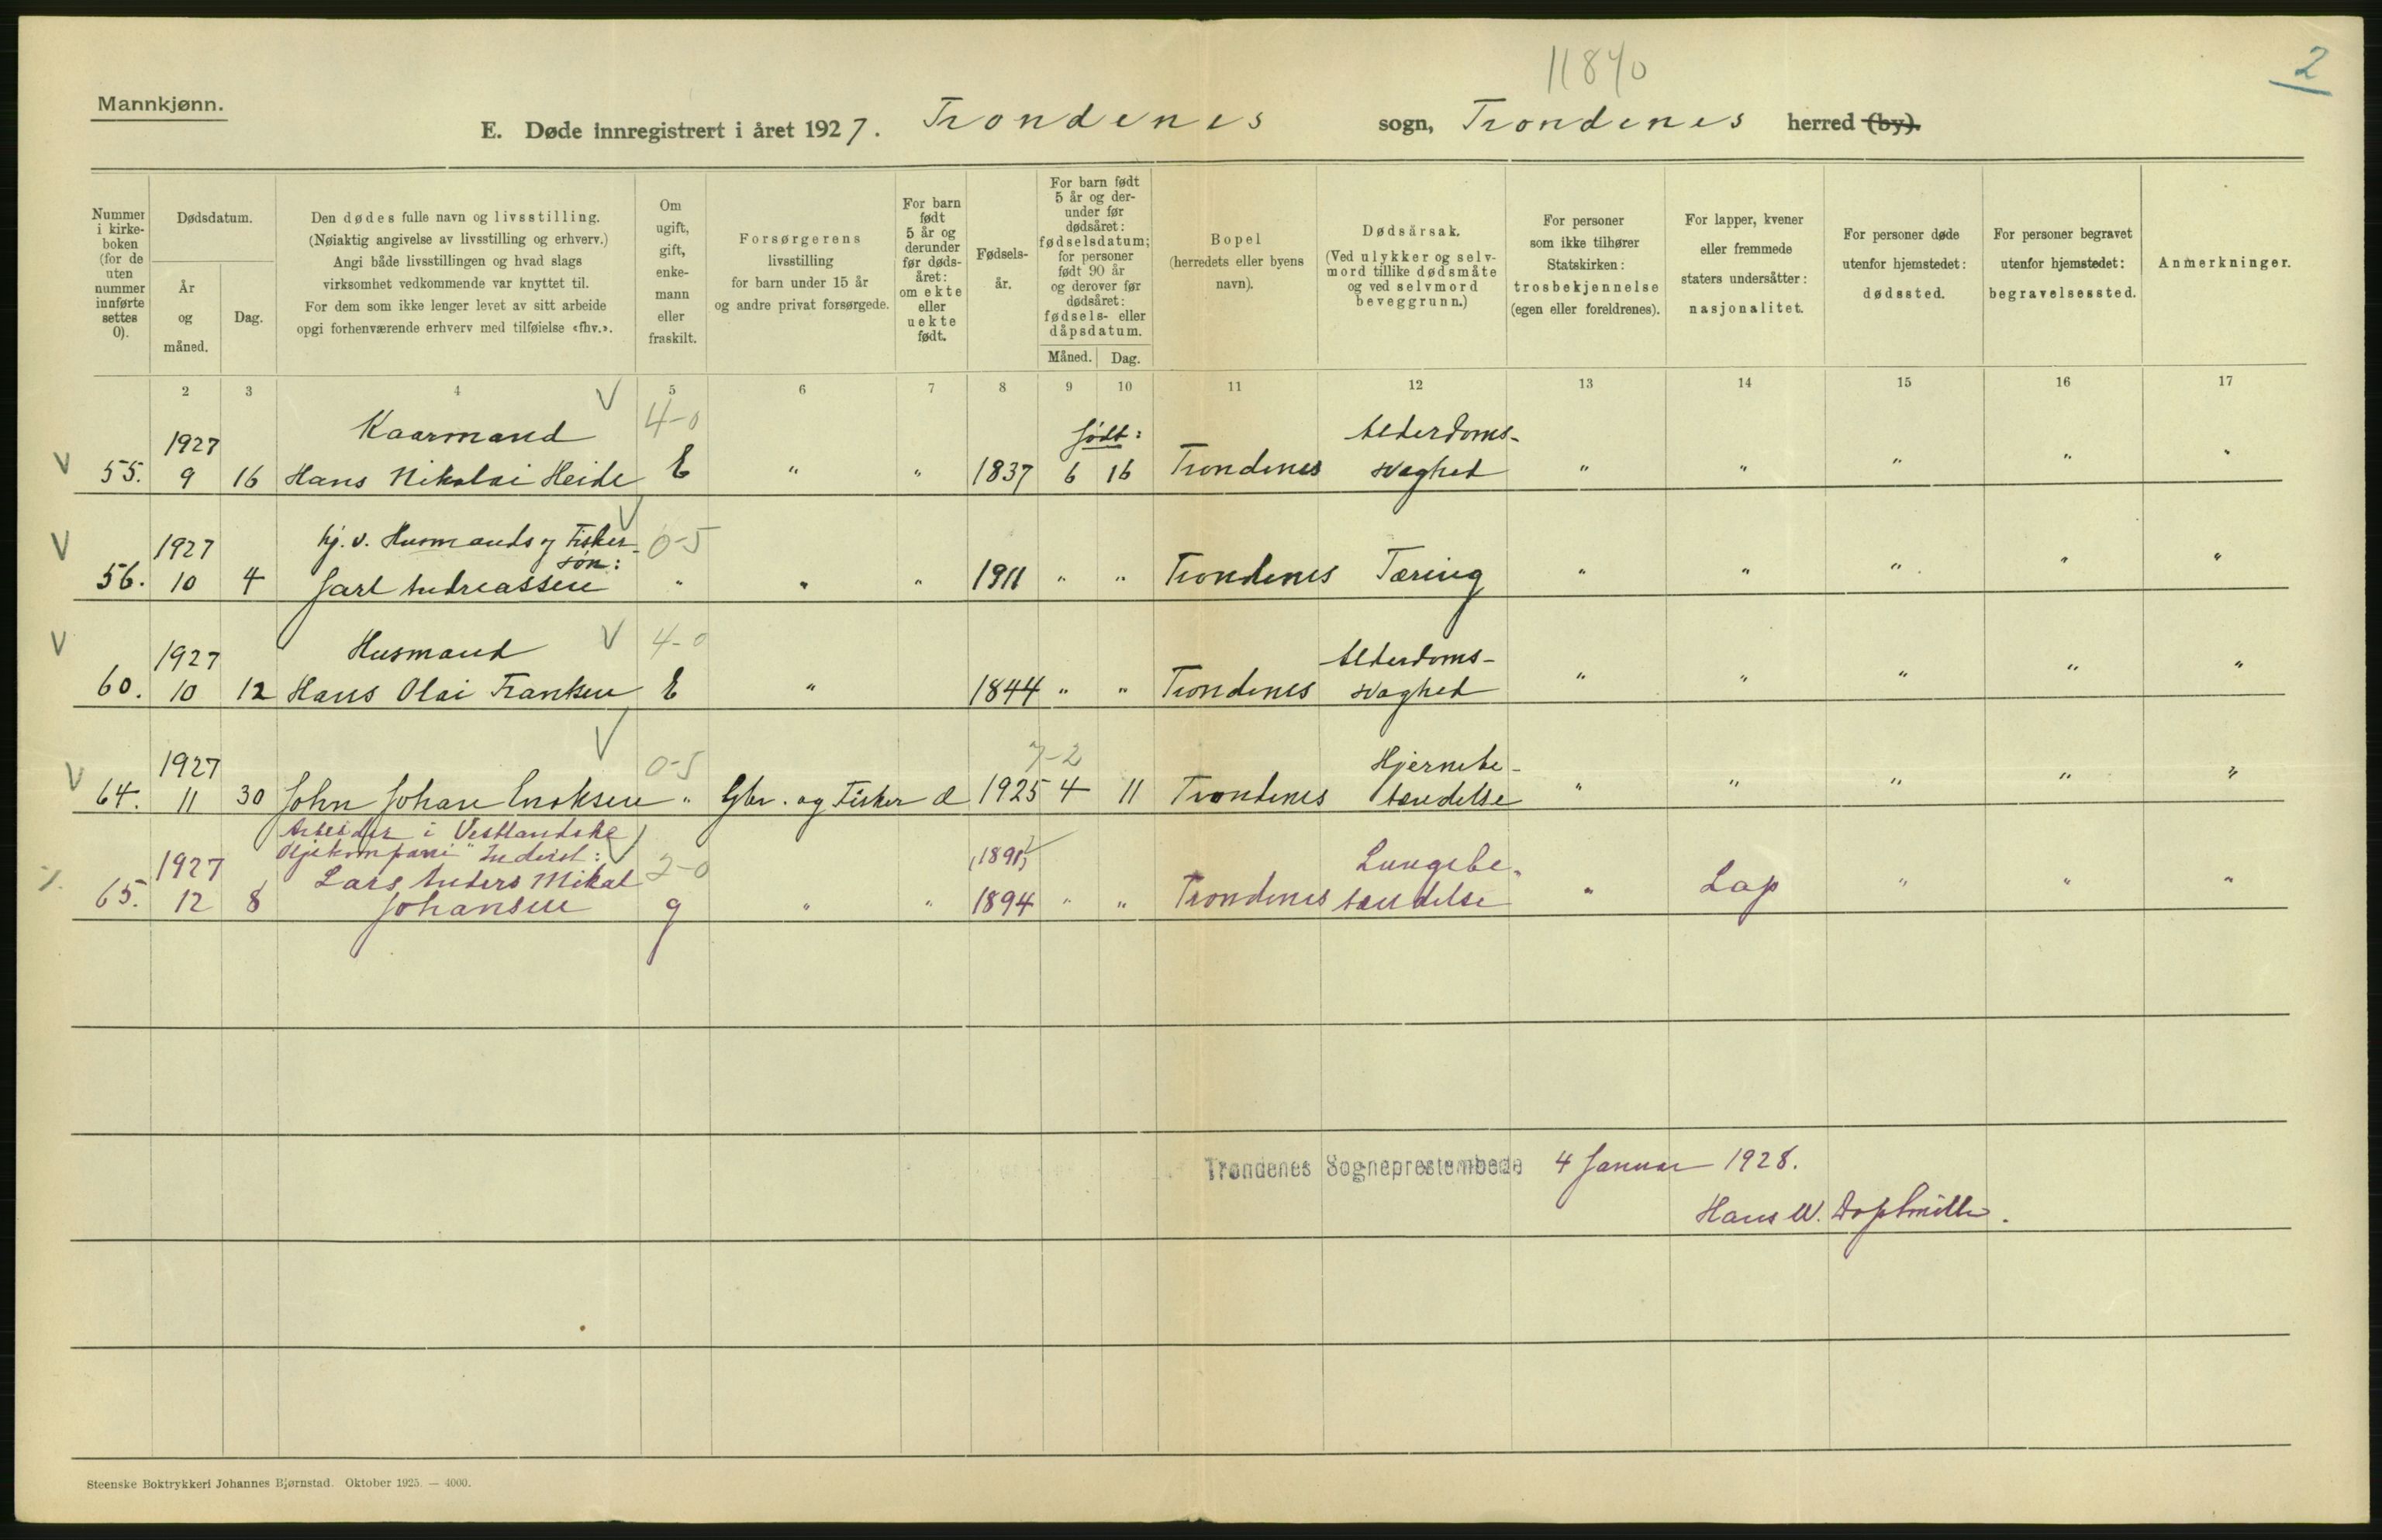 11840
2
Mannkjønn.
E. Døde innregistrert i året 1927. Trondenes sogn, Trondenes herred (by).
Nummer i kirke-boken (for de uten nummer innførte settes 0).
Dødsdatum.
År og måned.
Dag.
Den dødes fulle navn og livsstilling.
(Nøiaktig angivelse av livsstilling og erhverv.)
Angi både livsstillingen og hvad slags
virksomhet vedkommende var knyttet til.
For dem som ikke lenger levet av sitt arbeide
opgi forhenværende erhverv med tilføielse «fhv.».
Om ugift, gift, enke-mann eller fraskilt.
Forsørgerens
livsstilling
for barn under 15 år
og andre privat forsørgede.
For barn født 5 år og derunder før døds-året: om ekte eller uekte født.
Fødsels-år.
For barn født 5 år og der-under før dødsåret: fødselsdatum; for personer født 90 år og derover før dødsåret: fødsels- eller dåpsdatum.
Måned. Dag.
Bopel
(herredets eller byens
navn).
Dødsårsak.
(Ved ulykker og selv-
mord tillike dødsmåte
og ved selvmord
beveggrunn.)
For personer
som ikke tilhører
Statskirken:
trosbekjennelse
(egen eller foreldrenes).
For lapper, kvener
eller fremmede
staters undersåtter:
nasjonalitet.
For personer døde
utenfor hjemstedet:
dødssted.
For personer begravet
utenfor hjemstedet:
begravelsessted.
Anmerkninger.
2 3 4 5 6 7 8 9 10 11 12 13 14 15 16 17
V
1927 Kaarmand 4-0 født: Alderdoms-
V 55. 9 16 Hans Nikolai Heide E " " 1837 6 16 Trondenes svaghed " " " " "
V
V 1927 hj. v. Husmands og Fisker- 0-5
søn:
56. 10 4 Jarl Andreassen " " " 1911 " " Trondenes Tæring " " " " "
V 1927 Husmand V 4-0 Alderdoms-
60. 10 12 Hans Olai Franksen E " 1844 " " Trondenes svaghed " " " " "
V
1927 0-5 7-2 Hjernebe-
V 64. 11 30 John Johan Enoksen " Gbr. og Fisker E 1925 4 11 Trondenes tændelse " " " " "
Arbeider i Vestlandske
Oljekompani" Indvist: V
1927 Lars Anders Mikal 2-0 (1891) Lungebe-
65. 12 8 Johansen g " " 1894 " " Trondenes tændelse " Lap " " "
Trondenes Sogneprestembede 4 Januar 1928.
Hans W.
Steenske Boktrykkeri Johannes Bjørnstad. Oktober 1925. — 4000.